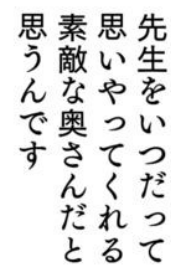 先生をいつだって
思いやってくれる
素敵な奥さんだと
思うんです